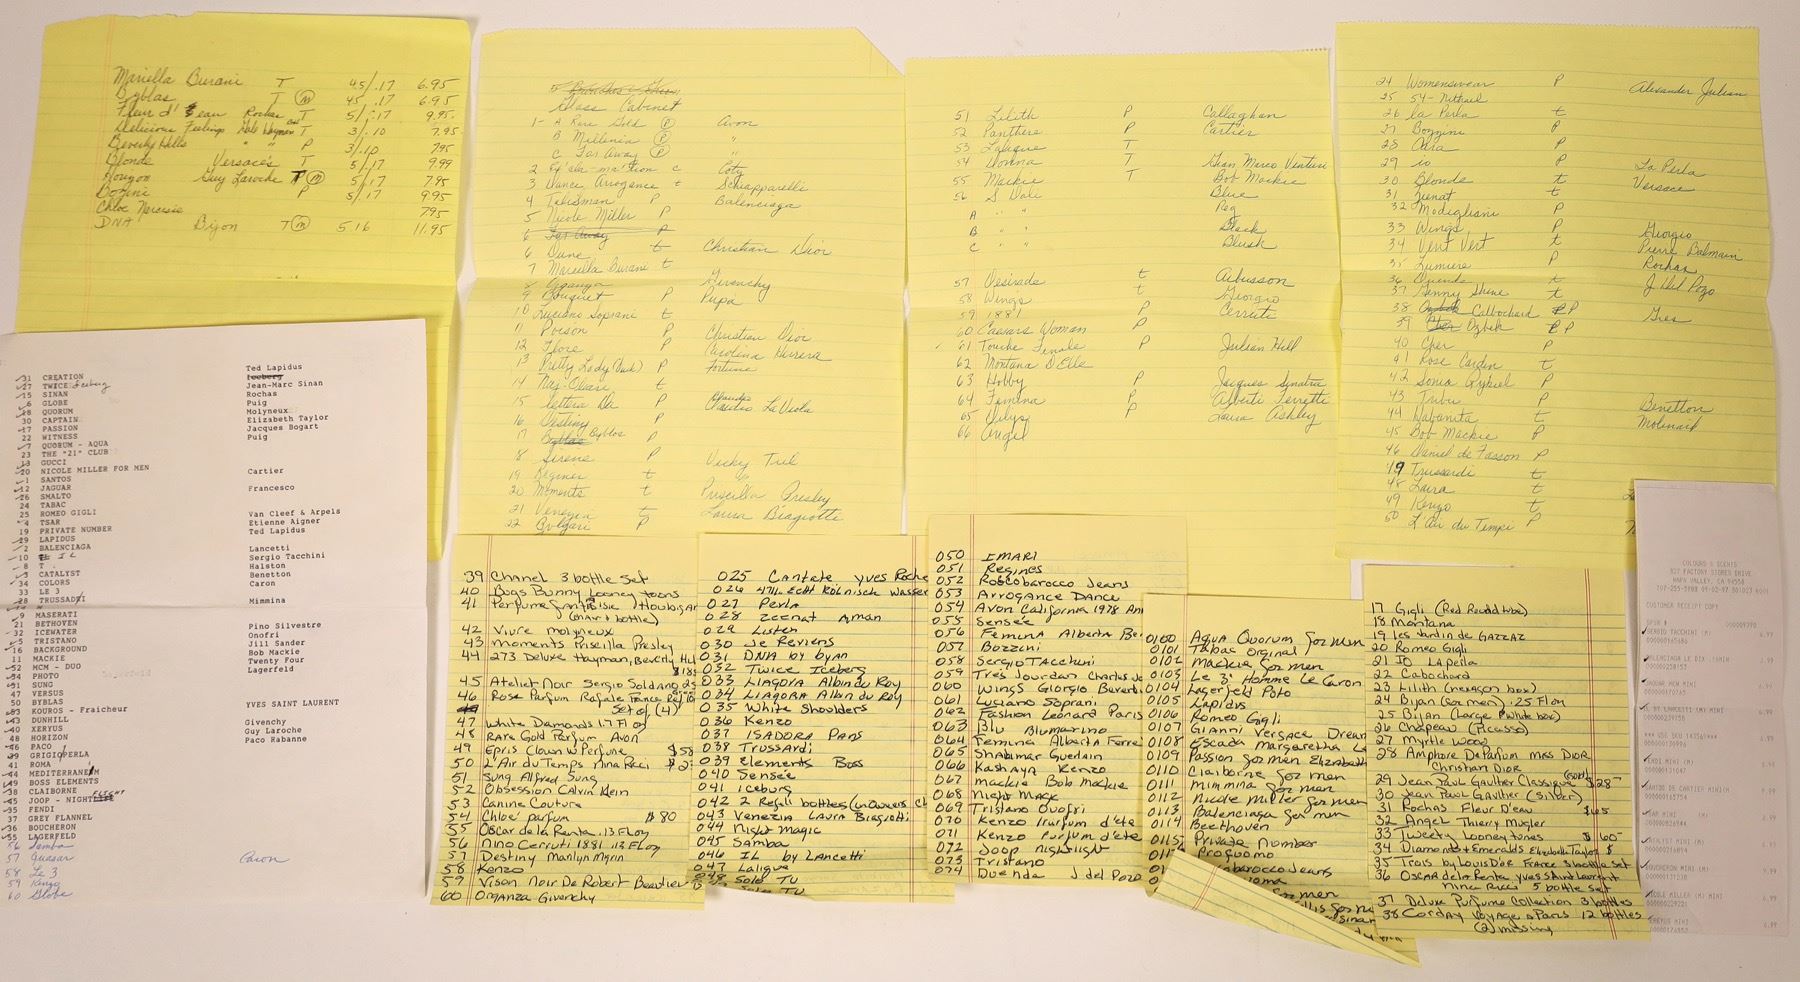 Mariella Burani T 45/.17 6.95
Byblas T (m) 45 .17 6.95
Fleur d' eau Rochas T 5/.17 9.95
Delicious Feelings Gale Hayman T 3/.10 7.95
Beverly Hills " " P 3/.10 795
Blonde Versace's T 5/.17 9.99
Horizon Guy Laroche T (m) 5/.17 7.95
Bozini P 5/.17 9.95
Chloe Narcisse 795
DNA Bijon T (m) 5 .16 11.95
Glass Cabinet
1- A Rare Gold (P) Avon
B Millenia (P) "
C Far Away (P) "
2 Ex'cla·ma'tion c Coty
3 Dance, Arrogance t Schiapparelli
4 Talisman P Balenciaga
5 Nicole Miller P
6 Far Away P
6 Dune t Christian Dior
7 Mariella Burani t
8 Organza Givenchy
9 Bouquet P Pupa
10 Luciano Soprani t
11 Poison P Christian Dior
12 Flore P Carolina Herrera
13 Pretty Lady P Fortune
14 Naj-Oleari t
15 Lettera Da P Claudio La Viola
16 Destiny P
17 Byblos P
8 Sirene P Vicky Tiel
19 Regines t
20 Moments t Priscilla Presley
21 Venezia t Laura Biagiotti
22 Bvlgari P
51 Lilith P Callaghan
52 Panthere P Cartier
53 Lalique T
54 Donna T Gian Marco Venturi
55 Mackie T Bob Mackie
56 S Dali Blue
A " " Peg
B " " Black
C " " Blush
57 Desirade t Aubusson
58 Wings t Giorgio
59 1881 P Cerruti
60 Caesars Woman P
61 Touche Finale Julian Hill
62 Montana D'Elle
63 Hobby P Jacques Sinatra
64 Femina P Alberti Ferretti
65 Dilys P Laura Ashley
66 Angel
24 Womenswear P Alexander Julian
25 54- Nithael
26 la Perla t
27 Bozzini P
28 Odia P
29 io P La Perla
30 Blonde t Versace
31 Zienat t
32 Modigliani P
33 Wings P Giorgio
34 Vent Vert t Pierre Balmain
35 Lumiere P Rochas
36 Duende t J Del Pozo
37 Jenny Shine t
38 Calbochard P Gres
39 Ozbek P
40 Cher P
41 Rose Cardin t
42 Sonia Rykiel P
43 Tribu P Benetton
44 Habanita t Molinard
45 Bob Mackie P
46 Daniel de Fasson P
49 Trussardi t
48 Laura t
49 Kenzo t
50 L'Air du Temps P
31 CREATION Ted Lapidus
27 TWICE Iceberg Iceberg
15 SINAN Jean-Marc Sinan
6 GLOBE Rochas
18 QUORUM Puig
30 CAPTAIN Molyneux
17 PASSION Elizabeth Taylor
22 WITNESS Jacques Bogart
7 QUORUM - AQUA Puig
23 THE "21" CLUB
13 GUCCI
20 NICOLE MILLER FOR MEN
1 SANTOS Cartier
12 JAGUAR
26 SMALTO Francesco
24 TABAC
25 ROMEO GIGLI
4 TSAR Van Cleef & Arpels
19 PRIVATE NUMBER Etienne Aigner
29 LAPIDUS Ted Lapidus
2 BALENCIAGA
10 IL Lancetti
8 T Sergio Tacchini
3 CATALYST Halston
34 COLORS Benetton
33 LE 3 Caron
28 TRUSSARDI
14 Mimmina
9 MASERATI
21 BETHOVEN
32 ICEWATER Pino Silvestre
5 TRISTANO Onofri
16 BACKGROUND Jill Sander
11 MACKIE Bob Mackie
52 MCM - DUO Twenty Four
54 PHOTO Lagerfeld
51 SUNG
47 VERSUS
50 BYBLAS
53 KOUROS - Fraicheur YVES SAINT LAURENT
43 DUNHILL
40 XERYUS Givenchy
48 HORIZON Guy Laroche
46 PACO Paco Rabanne
39 GRIGIOPERLA
41 ROMA
44 MEDITERRANEUM
49 BOSS ELEMENTS
38 CLAIBORNE
45 JOOP - NIGHTFLIGHT
35 FENDI
37 GREY FLANNEL
36 BOUCHERON
55 LAGERFELD
56 Samba
57 Quasar
58 Le 3 Caron
59 Kenzo
60 Globe
39 Chanel 3 bottle Set
40 Bugs Bunny Looney toons
41 Perfume Fantasie / Houbigant
(Mar + bottle)
42 Vivre molyneux
43 moments Priscilla Presley
44 273 Deluxe Hayman, Beverly Hil
$185
45 Atelier Noir Sergio Soldano
46 Rose Parfum Rafale France
Set of (4)
47 White Diamonds 1.7 Fl oz
48 Rare Gold Parfum Avon
49 Epris Clown w Perfume $58
50 L'Air du Temps Nina Ricci
51 Sung Alfred Sung
52 Obsession Calvin Klein
53 Canine Couture
54 Chloe' parfum $80
55 Oscar de la Renta .13 FL oz
56 Nino Cerruti 1881 .13 FL oz
57 Destiny Marilyn Mgrin
58 Kenzo
59 Vison Noir De Robert Beautier
60 Organza Givenchy
025 Cantate Yves Roche
026 4711. Echt Kölnisch Wasser
027 Perla
028 Zeenat Aman
029 Listen
030 Je Reviens
031 DNA by Byan
032 Twice Iceberg
033 LIAGORA Albin du Roy
034 LIAGORA Albin du Roy
035 White Shoulders
036 Kenzo
037 ISADORA Paris
038 Trussardi
039 Elements Boss
040 Sensee
041 iceburg
042 2 Refill bottles (in Queens Ch
043 Venezia Laura Biagiotti
044 Night Magic
045 Samba
046 IL by Lancetti
047 Lalique
048 Solo TU
Solo TU
050 IMARI
051 Regines
052 Roccobarocco Jeans
053 Arrogance Dance
054 Avon California 1978 Ann
055 Sensee
056 Femina Alberta Be
057 Bozzini
058 Sergio Tacchini
059 Tres Jourdan Charles Jo
060 Wings Giorgio Beverl
061 Luciano Soprani
062 Fashion Leonard Paris
063 Blu Blumarino
064 Femina Alberta Ferre
065 Shalimar Guerlain
066 Kashaya Kenzo
067 Mackie Bob Mackie
068 Night Magic
069 Tristano Onofri
070 Kenzo Parfum d'ete
071 Kenzo Parfum d'ete
072 Joop nightflight
073 Tristano
074 Duenda J del Pozo
0100 Aqua Quorum for men
0101 Tabac Orginal
0102 Mackie for men
0103 Le 3e Homme Le Caron
0104 Lagerfeld Foto
0105 Lapidus
0106 Romeo Gigli
0107 Gianni Versace Dream
0108 Escada Margaretha L
0109 Passion for men Elizabeth
0110 Claiborne for men
0111 Mimmina for men
0112 Nicole Miller for men
0113 Balenciaga for men
0114 Beethoven
0115 Private Number
0116 Profuomo
oma
obarocco Jeans
for men
llis for me
sinan
17 Gigli (Red Read tube)
18 Montana
19 Les Jardin de GAZZAZ
20 Romeo Gigli
21 IO La perla
22 Cabochard
23 Lilith (hexagon box)
24 Bijan (for men) .25 FL oz
25 Bijan (Large white box)
26 Chapeau (Picasso)
27 Myrtle Wood
28 Amphore DeParfum Miss Dior
Christian Dior
29 Jean Paul Gaulter Classique (Gold) $28
30 Jean Paul Gaulter (Silver)
31 Rochas Fleur D'eau $65
32 Angel Thierry Mugler
33 Tweety Looney tunes $60
34 Diamonds & Emeralds Elizabeth Taylor $
35 Trois by Louis D'or France 3 bottle Set
36 Oscar de la Renta Yves Saint Laurent
nina Ricci 5 bottle set
37 Deluxe Perfume Collection 3 bottles
38 Corday Voyage a Paris 12 bottles
(2) missing
COLOURS & SCENTS
827 FACTORY STORES DRIVE
NAPA VALLEY, CA 94558
CUSTOMER RECEIPT COPY
SERGIO TACCHINI (M) 6.99
BALENCIAGA LE DIX
JAGUAR MEN MINI
IL BY LANCETTI (M) MINI
FENDI MINI (M) MINI
SANTOS DE CARTIER MINI(M
TSAR MINI (M)
CATALYST MINI (M)
BOUCHERON MINI (M)
NICOLE MILLER (M) MINI
XERYUS MINI